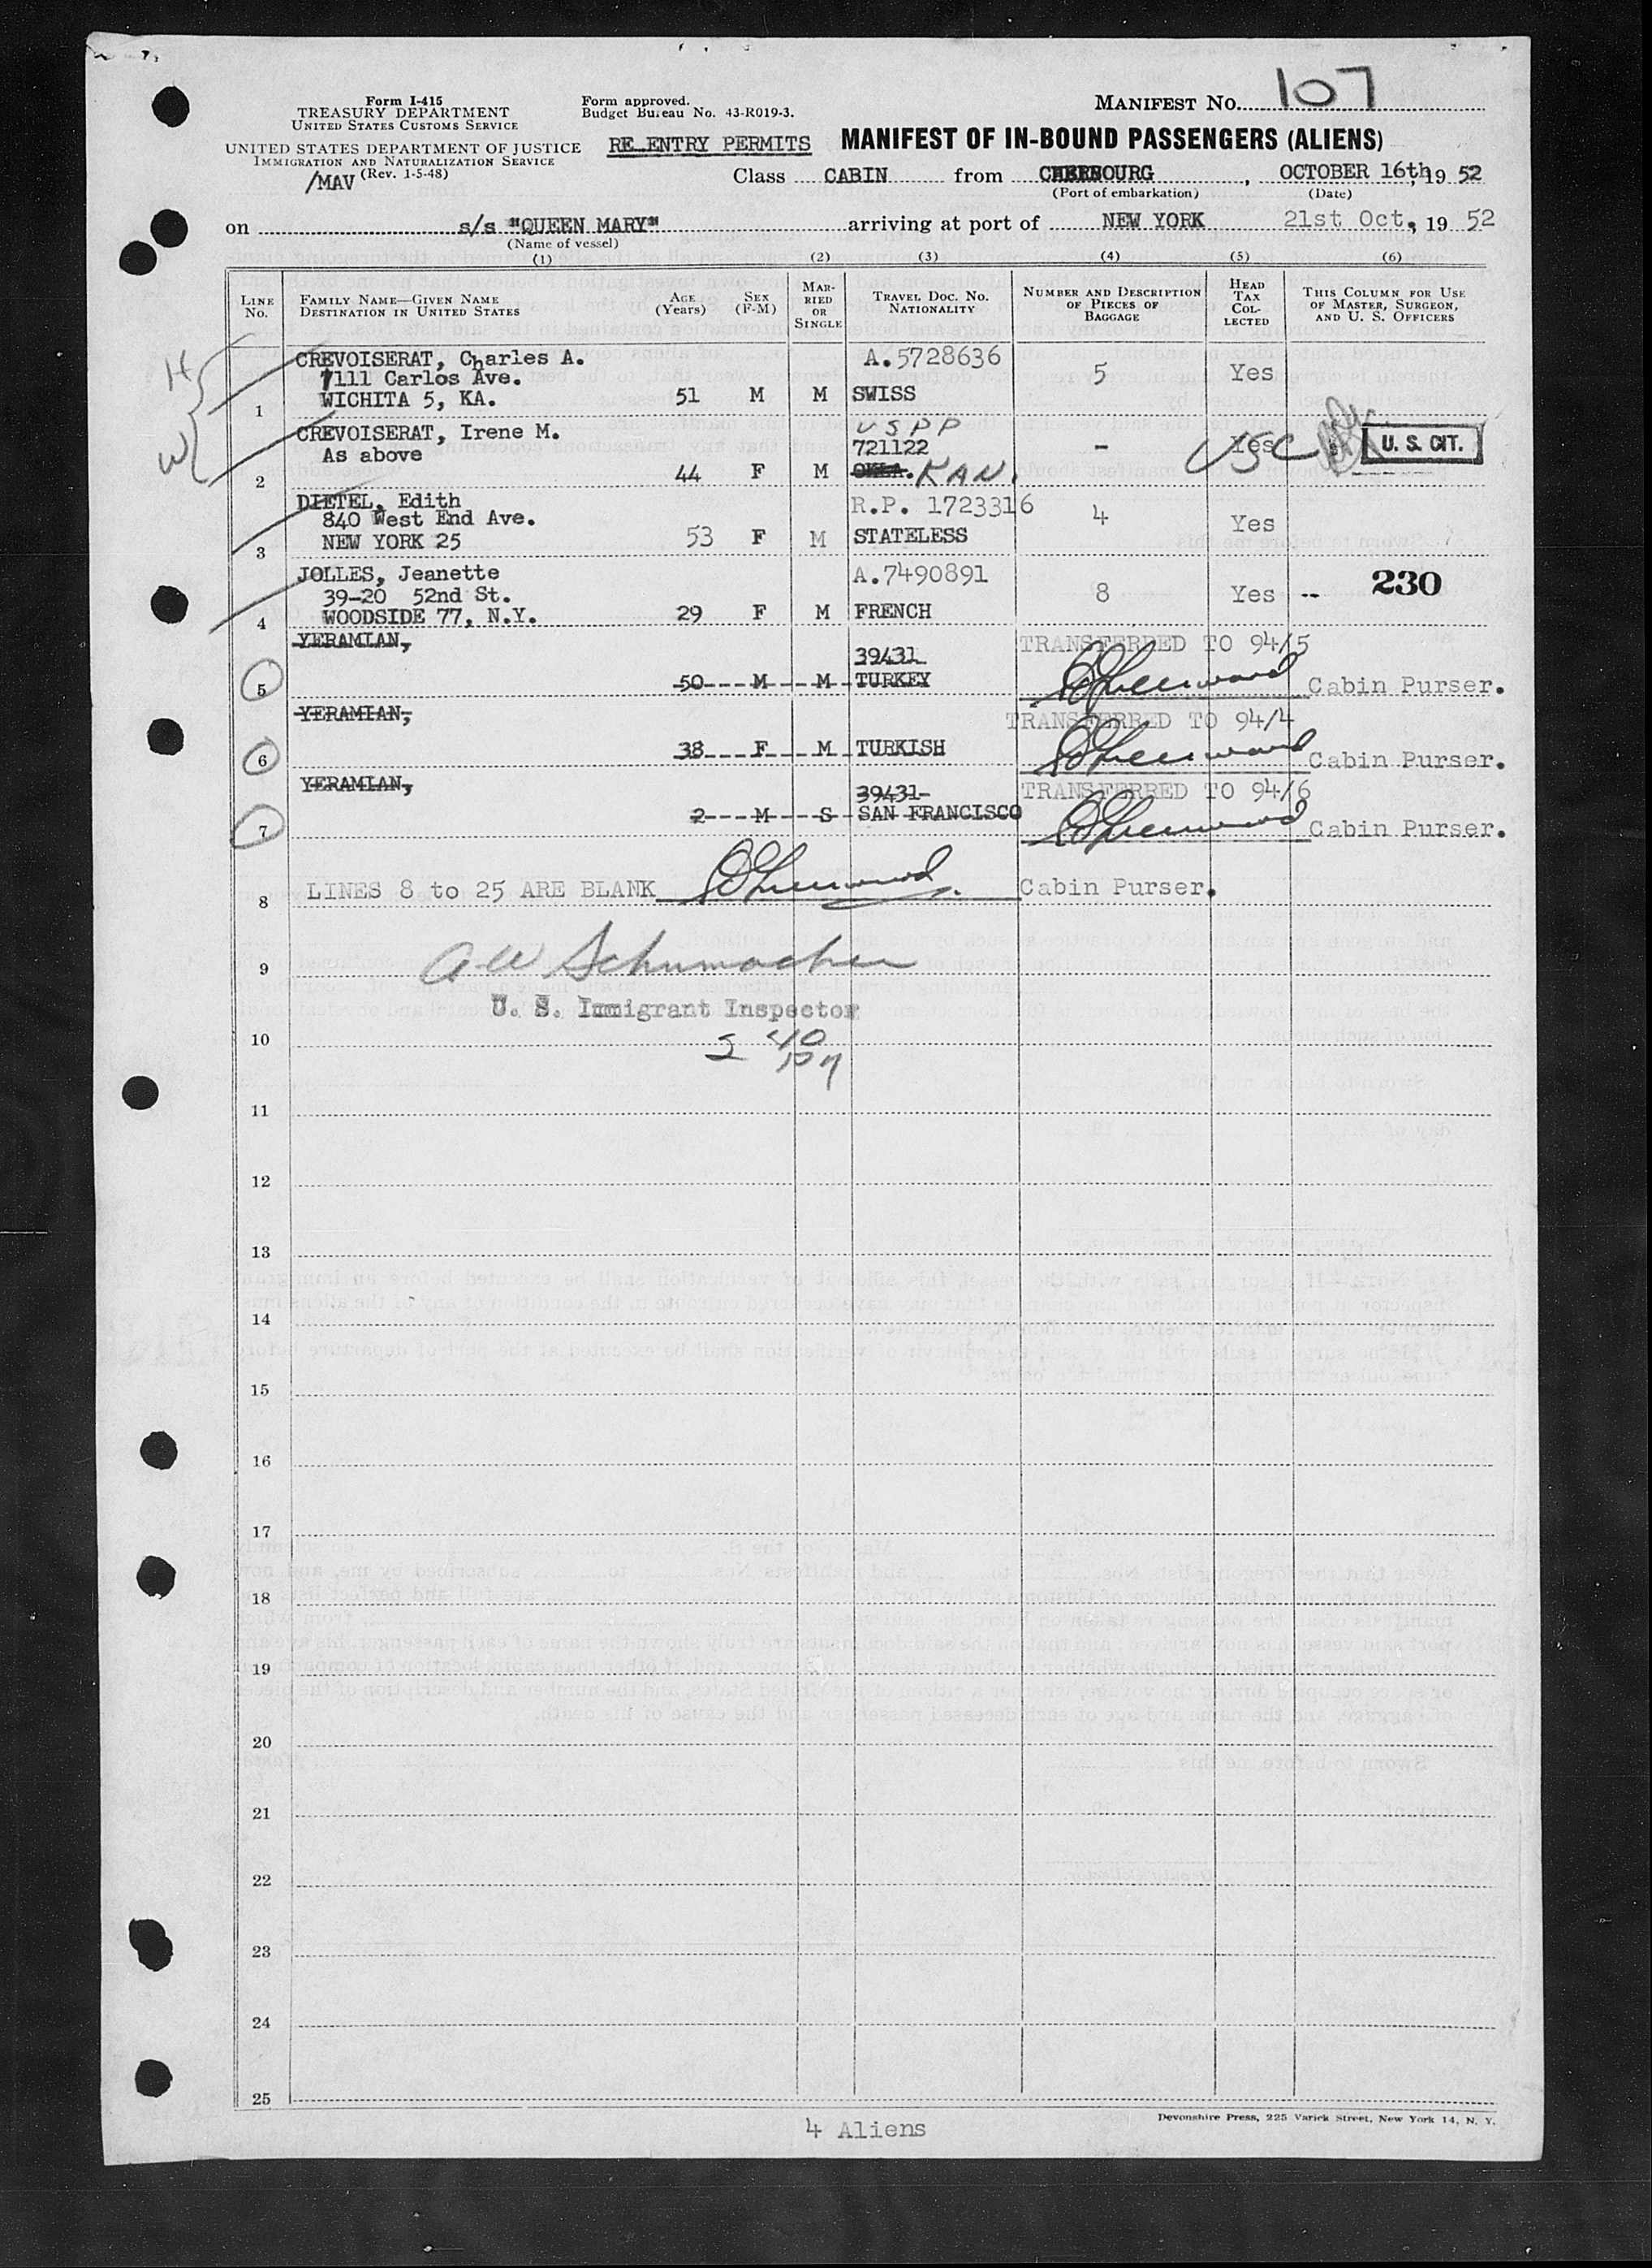 Form I-415
TREASURY DEPARTMENT
UNITED STATES CUSTOMS SERVICE
UNITED STATES DEPARTMENT OF JUSTICE
IMMIGRATION AND NATURALIZATION SERVICE
(Rev. 1-5-48)
/MAV
Form approved.
Budget Bureau No. 43-R019-3.
MANIFEST No. 107
RE ENTRY PERMITS MANIFEST OF IN-BOUND PASSENGERS (ALIENS)
Class CABIN from CHERBOURG, OCTOBER 16th, 19 52
(Port of embarkation) (Date)
on s/s "QUEEN MARY" arriving at port of NEW YORK 21st Oct, 19 52
(Name of vessel)
(1) (2) (3) (4) (5) (6)
LINE No. FAMILY NAME—GIVEN NAME DESTINATION IN UNITED STATES AGE (Years) SEX (F-M) MARRIED OR SINGLE TRAVEL DOC. NO. NATIONALITY NUMBER AND DESCRIPTION OF PIECES OF BAGGAGE HEAD TAX COLLECTED THIS COLUMN FOR USE OF MASTER, SURGEON, AND U. S. OFFICERS
H
W
CREVOISERAT, Charles A. A.5728636
1111 Carlos Ave. 5 Yes
1 WICHITA 5, KA. 51 M M SWISS
CREVOISERAT, Irene M. USPP
As above 721122 - Yes USC U. S. CIT.
2 44 F M OKLA. KAN.
DIETEL, Edith R.P. 1723316
840 West End Ave. 4 Yes
3 NEW YORK 25 53 F M STATELESS
JOLLES, Jeanette A.7490891
39-20 52nd St. 8 Yes -- 230
4 WOODSIDE 77, N.Y. 29 F M FRENCH
YERAMIAN, TRANSFERRED TO 94/5
39431
5 50 M M TURKEY Cabin Purser.
YERAMIAN, TRANSFERRED TO 94/4
6 38 F M TURKISH Cabin Purser.
YERAMIAN, 39431 TRANSFERRED TO 94/6
2 M S SAN FRANCISCO
7 Cabin Purser.
8 LINES 8 to 25 ARE BLANK Cabin Purser.
9 A W Schumacher
U. S. Immigrant Inspector
10
11
12
13
14
15
16
17
18
19
20
21
22
23
24
25
4 Aliens
Devonshire Press, 225 Varick Street, New York 14, N. Y.